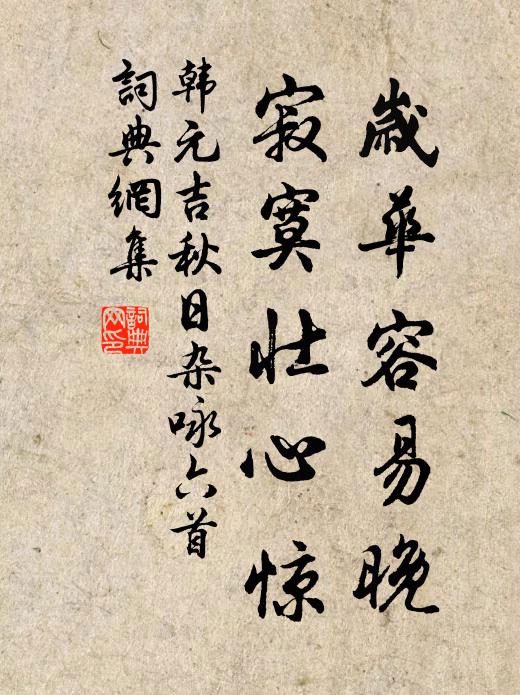 歲華容易晚
寂寞壮心惊
韩元吉秋日杂咏六首
詞典網集
詞典网印